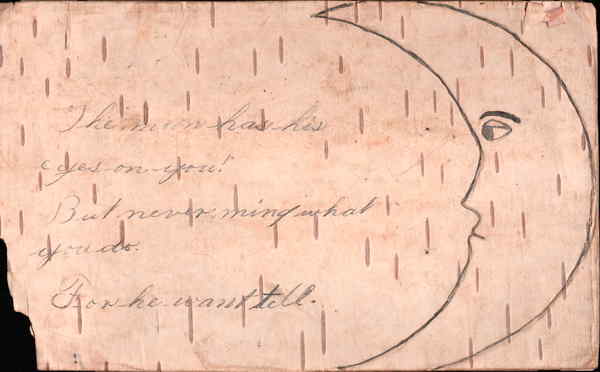 The moon has his
eyes on you!
But never mind what
you do.
For he want tell.